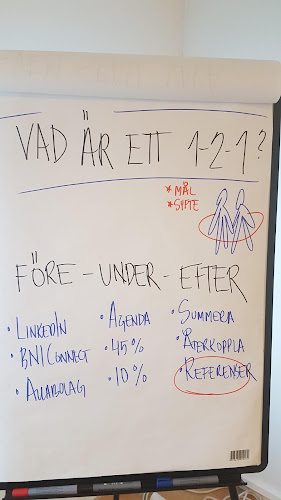 VAD ÄR ETT 1-2-1?
* MÅL
* SYFTE
FÖRE - UNDER - EFTER
• LINKEDIN • AGENDA • SUMMERA
• BNI CONNECT • 45% • ÅTERKOPPLA
• ALLABOLAG • 10% • REFERENSER